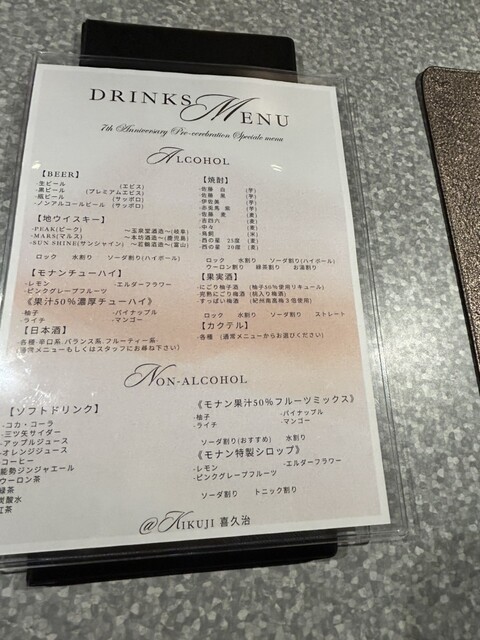 DRINKS MENU
7th Anniversary Pre-cerebration Speciale menu
ALCOHOL
【BEER】
-生ビール (エビス)
-黒ビール (プレミアムエビス)
-瓶ビール (サッポロ)
-ノンアルコールビール (サッポロ)
【地ウイスキー】
-PEAK(ピーク) ～玉泉堂酒造～(岐阜)
-MARS(マルス) ～本坊酒造～(鹿児島)
-SUN SHINE(サンシャイン) ～若鶴酒造～(富山)
ロック 水割り ソーダ割り(ハイボール)
【モナンチューハイ】
-レモン -エルダーフラワー
-ピンクグレープフルーツ
《果汁50％濃厚チューハイ》
-柚子 -パイナップル
-ライチ -マンゴー
【日本酒】
-各種-辛口系 バランス系 フルーティー系-
(通常メニューもしくはスタッフにお尋ね下さい)
【焼酎】
-佐藤 白 (芋)
-佐藤 黒 (芋)
-伊佐美 (芋)
-赤兎馬 紫 (芋)
-佐藤 麦 (麦)
-吉四六 (麦)
-中々 (麦)
-鳥飼 (米)
-西の星 25度 (麦)
-西の星 20度 (麦)
ロック 水割り ソーダ割り(ハイボール)
ウーロン割り 緑茶割り お湯割り
【果実酒】
-にごり柚子酒 (柚子50％使用リキュール)
-完熟にごり梅酒 (桃入り梅酒)
-すっぱい梅酒 (紀州南高梅3倍使用)
ロック 水割り ソーダ割り ストレート
【カクテル】
-各種 (通常メニューからお選びください)
NON-ALCOHOL
【ソフトドリンク】
-コカ・コーラ
-三ツ矢サイダー
-アップルジュース
-オレンジジュース
-コーヒー
能勢ジンジャエール
ウーロン茶
緑茶
炭酸水
紅茶
《モナン果汁50％フルーツミックス》
-柚子 -パイナップル
-ライチ -マンゴー
ソーダ割り(おすすめ) 水割り
《モナン特製シロップ》
-レモン -エルダーフラワー
-ピンクグレープフルーツ
ソーダ割り トニック割り
@KIKUJI 喜久治